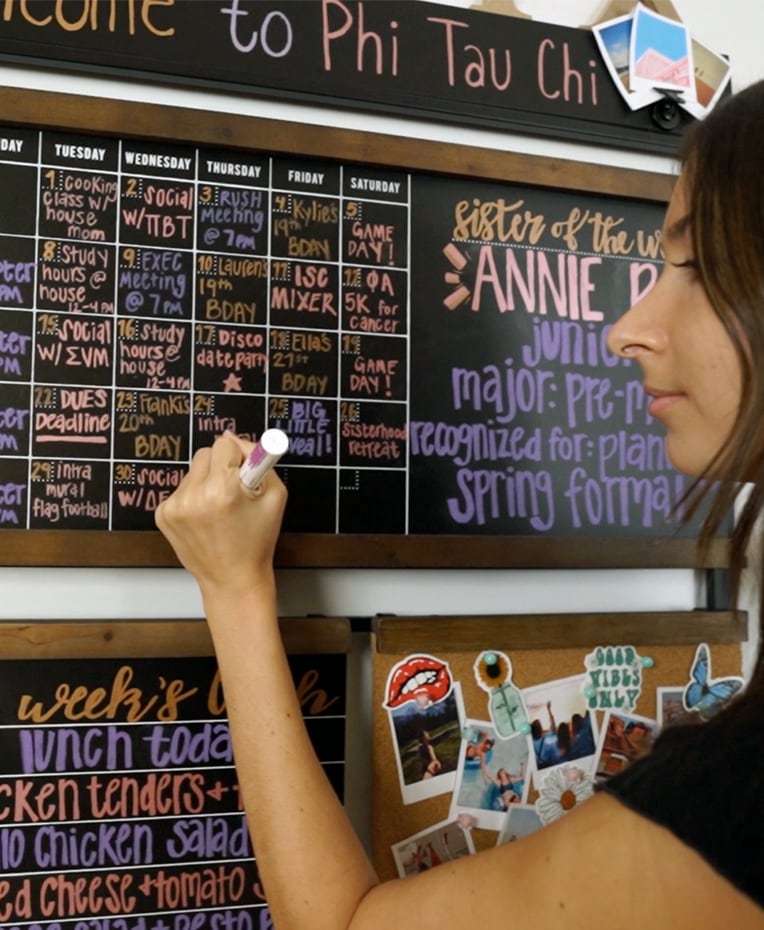 to Phi Tau Chi
TUESDAY WEDNESDAY THURSDAY FRIDAY SATURDAY
1 Cooking class w/ house mom
2 Social W/ΠBT
3 RUSH Meeting @ 7PM
4 Kylie's 19th BDAY
5 GAME DAY!
8 Study hours @ house 12-4PM
9 EXEC Meeting @ 7PM
10 Lauren's 19th BDAY
11 ISC MIXER
12 ΦA 5K for cancer
15 Social W/ΣVM
16 Study hours @ house 12-4PM
17 Disco date party
18 Ella's 21st BDAY
19 GAME DAY!
22 DUES Deadline
23 Franki's 20th BDAY
24 intra
25 BIG
26 Sisterhood retreat
29 intra mural flag football
30 Social
sister of the
ANNIE
major:
recognized for:
spring
week's
lunch
tenders +
chicken salad
tomato
GOOD
VIBES
ONLY